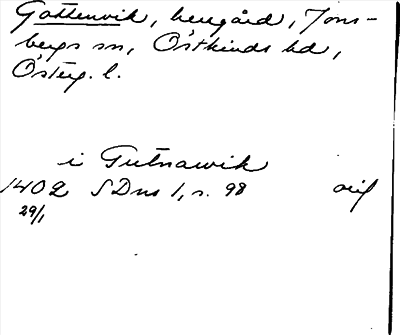 Gottenvik, herrgård, Jons-
bergs sn, Östkinds hd,
Österg. l.
i Gutnawik
1402 SDns 1, s. 98 orig
29/1